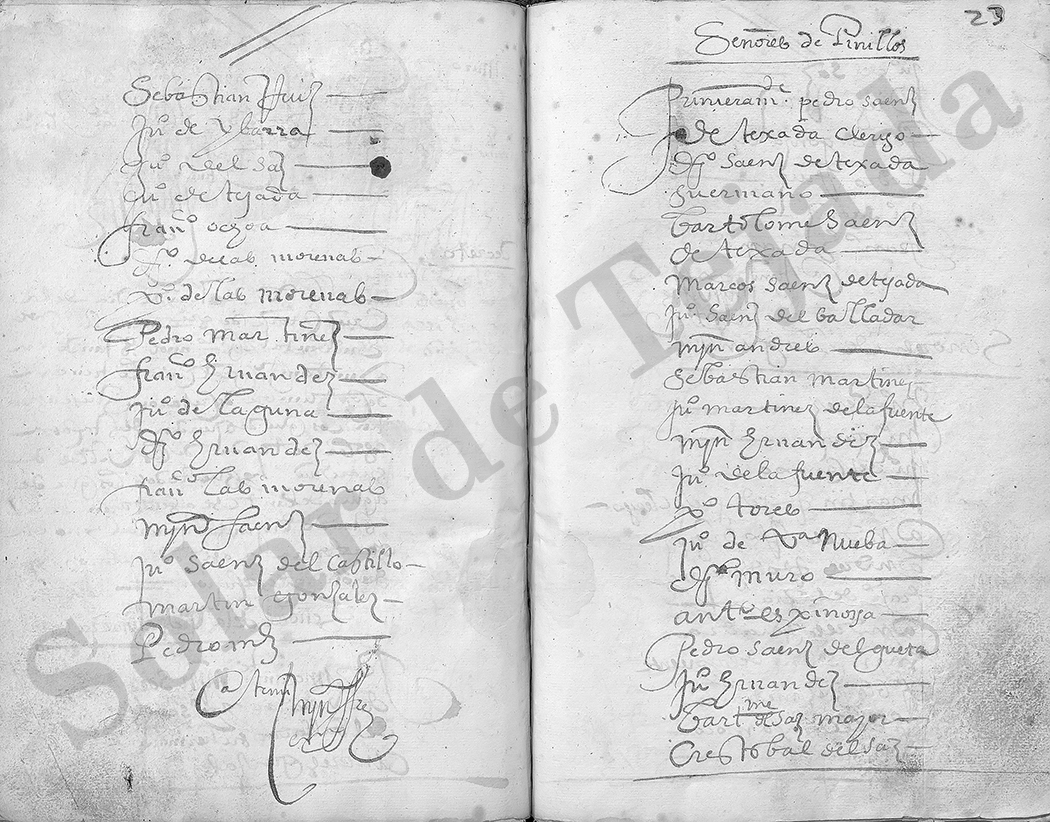 Sebastian Ruiz
Juº de ybarra
Juº del saz
Juº de tejada
franº ochoa
dgº de las morenas
xpl de las morenas
Pedro martinez
franº hrnandez
Juº de laguna
dgº hrnandez
franº las morenas
mjn saenz
Juº saenz del castillo
martin gonzalez
Pedro mz
23
Señores de Pinillos
Primeramte pedro saenz
de texada clerigo
dgº saenz de texada
su ermano
bartolome saenz
de texada
marcos saenz de tejada
Juº saenz del balladar
mjn andres
sebastian martinez
Juº martinez de la fuente
mjn hrnandez
Juº de la fuente
xpl tores
Juº de Va Nueba
dgº muro
antº espinosa
Pedro saenz del gueta
Juº hrnandez
bartme del saz major
Crestobal del saz
Solar de Tejada